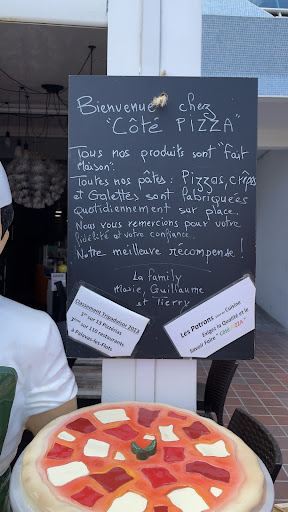 Bienvenue chez
"CÔTÉ PIZZA"
Tous nos produits sont "fait
Maison".
Toutes nos pâtes : Pizzas, crêpes
et Galettes sont fabriquées
quotidiennement sur place.
Nous vous remercions pour votre
fidélité et votre confiance.
Notre meilleure récompense !
La family
Marie, Guillaume
et Thierry
Classement Tripadvisor 2023
1er sur 13 Pizzérias
2ème sur 110 restaurants
à Palavas-les-Flots
Les Patrons sont en Cuisine
Exigez la Qualité et le
Savoir Faire " Côté PIZZA "